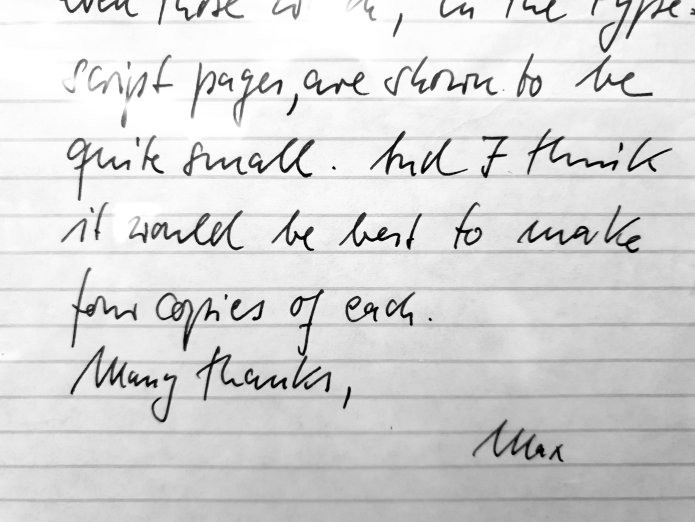 even those , in the type-
script pages, are shown to be
quite small. And I think
it would be best to make
four copies of each.
Many thanks,
Max